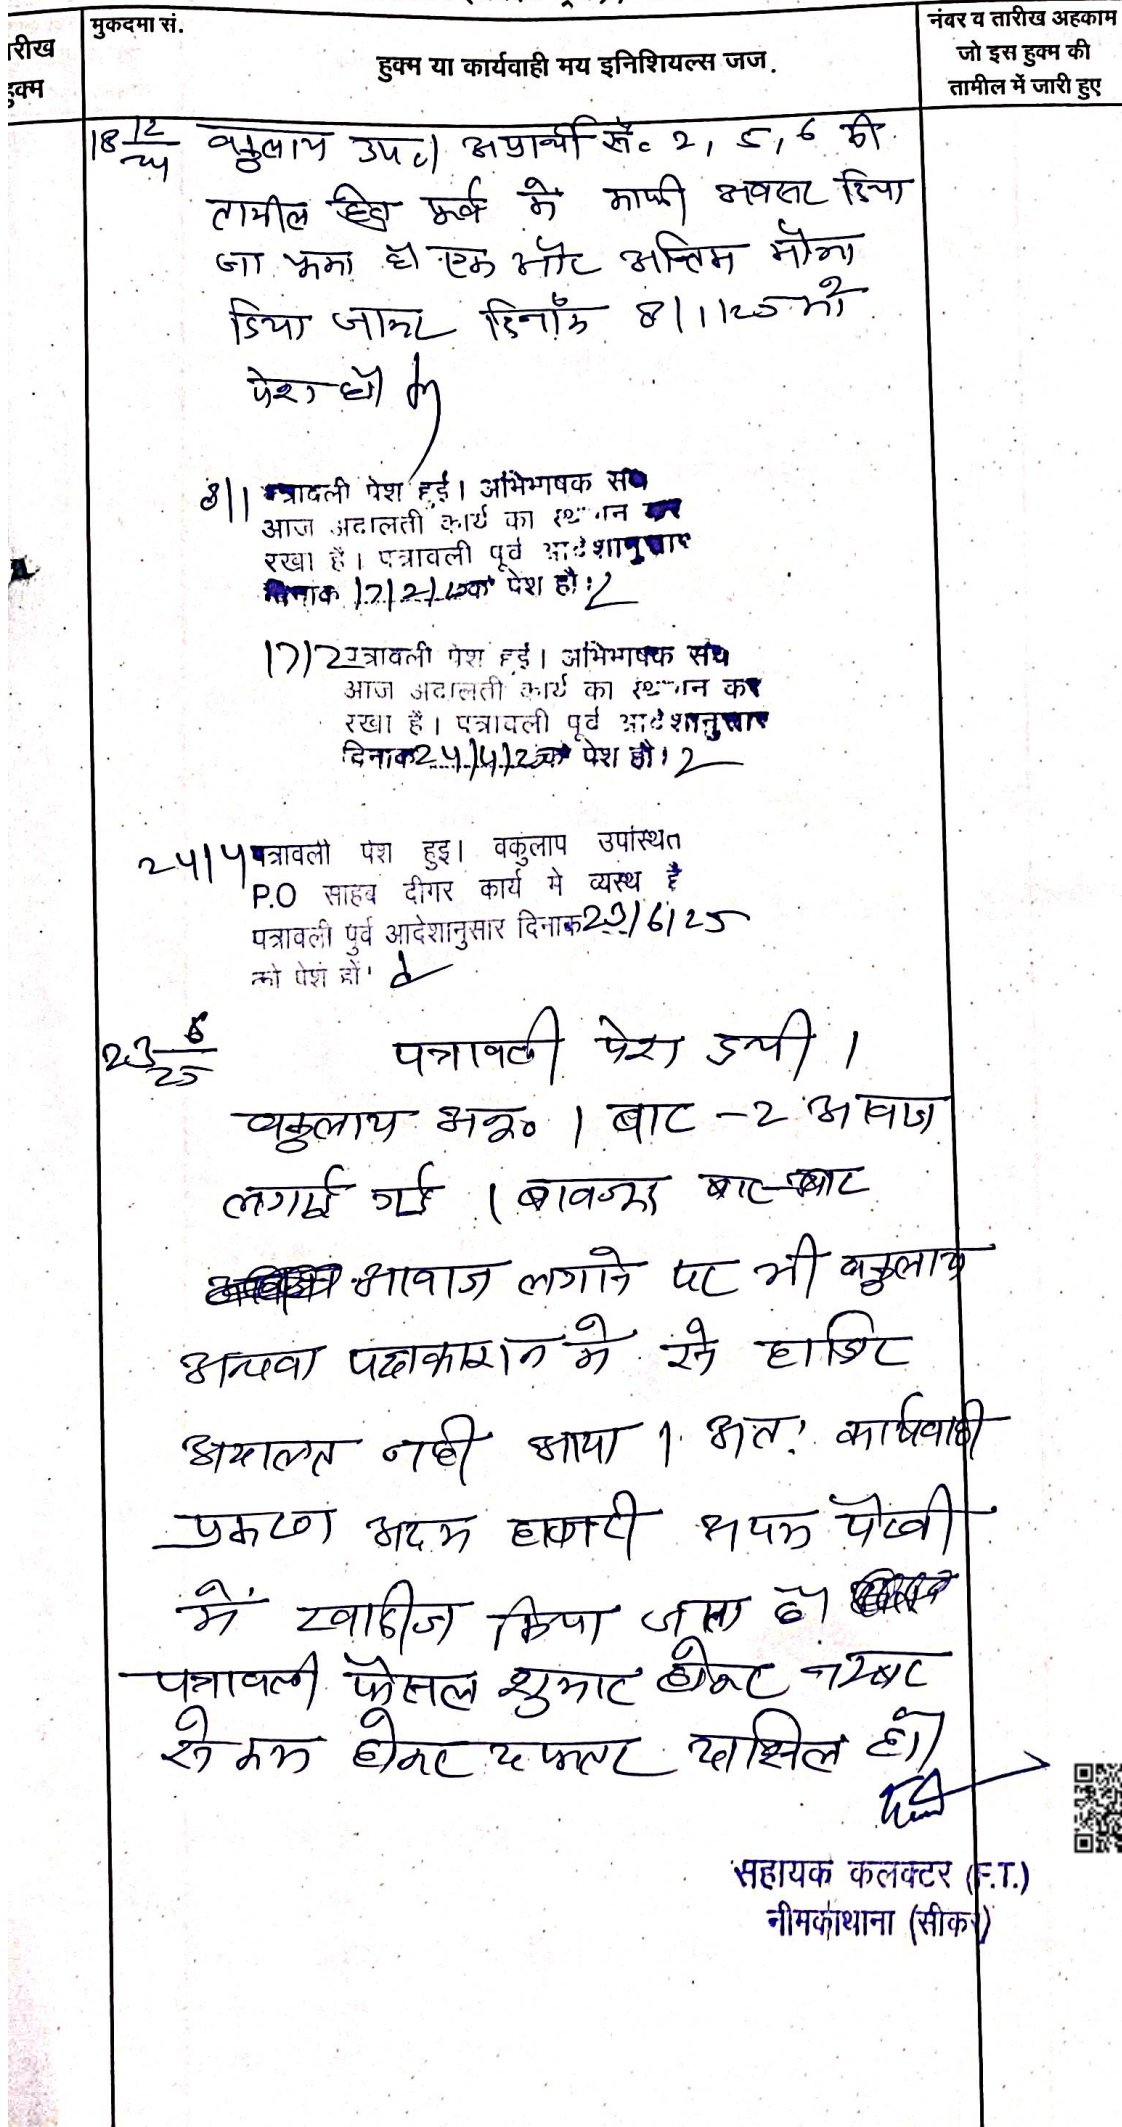 मुकदमा सं.
रीख
हुक्म
हुक्म या कार्यवाही मय इनिशियल्स जज.
नंबर व तारीख अहकाम
जो इस हुक्म की
तामील में जारी हुए
18 12/24 वकुलाय उप०। अप्रार्थी सं० 2, 5, 6 की
तामील हेतु पूर्व में काफी अवसर दिया
जा चुका है एक और अन्तिम मौका
दिया जाकर दिनाँक 8/1/25 को
पेश हो
8/1 पत्रावली पेश हुई। अभिभाषक संघ
आज अदालती कार्य का स्थगन कर
रखा है। पत्रावली पूर्व आदेशानुसार
दिनाक 17/2/25 को पेश हो।
17/2 पत्रावली पेश हुई। अभिभाषक संघ
आज अदालती कार्य का स्थगन कर
रखा है। पत्रावली पूर्व आदेशानुसार
दिनाक 24/4/25 को पेश हो।
24/4 पत्रावली पेश हुइ। वकुलाप उपस्थित
P.O साहब दीगर कार्य मे व्यस्थ है
पत्रावली पुर्व आदेशानुसार दिनाक 23/6/25
को पेश हों
23 6/25 पत्रावली पेश हुयी।
वकुलाय अनु०। बार-2 आवाज
लगाई गई। बावजूद बार-बार
आवाज लगाने पर भी वकुलाय
अथवा पक्षकारान मे से हाजिर
अदालत नही आया। अत: कार्यवाही
प्रकरण अदम हाजरी अदम पैरवी
में खारीज किया जाता है।
पत्रावली फैसल शुमार होकर नम्बर
से कम होकर दफ्तर दाखिल हो।
सहायक कलक्टर (F.T.)
नीमकाथाना (सीकर)